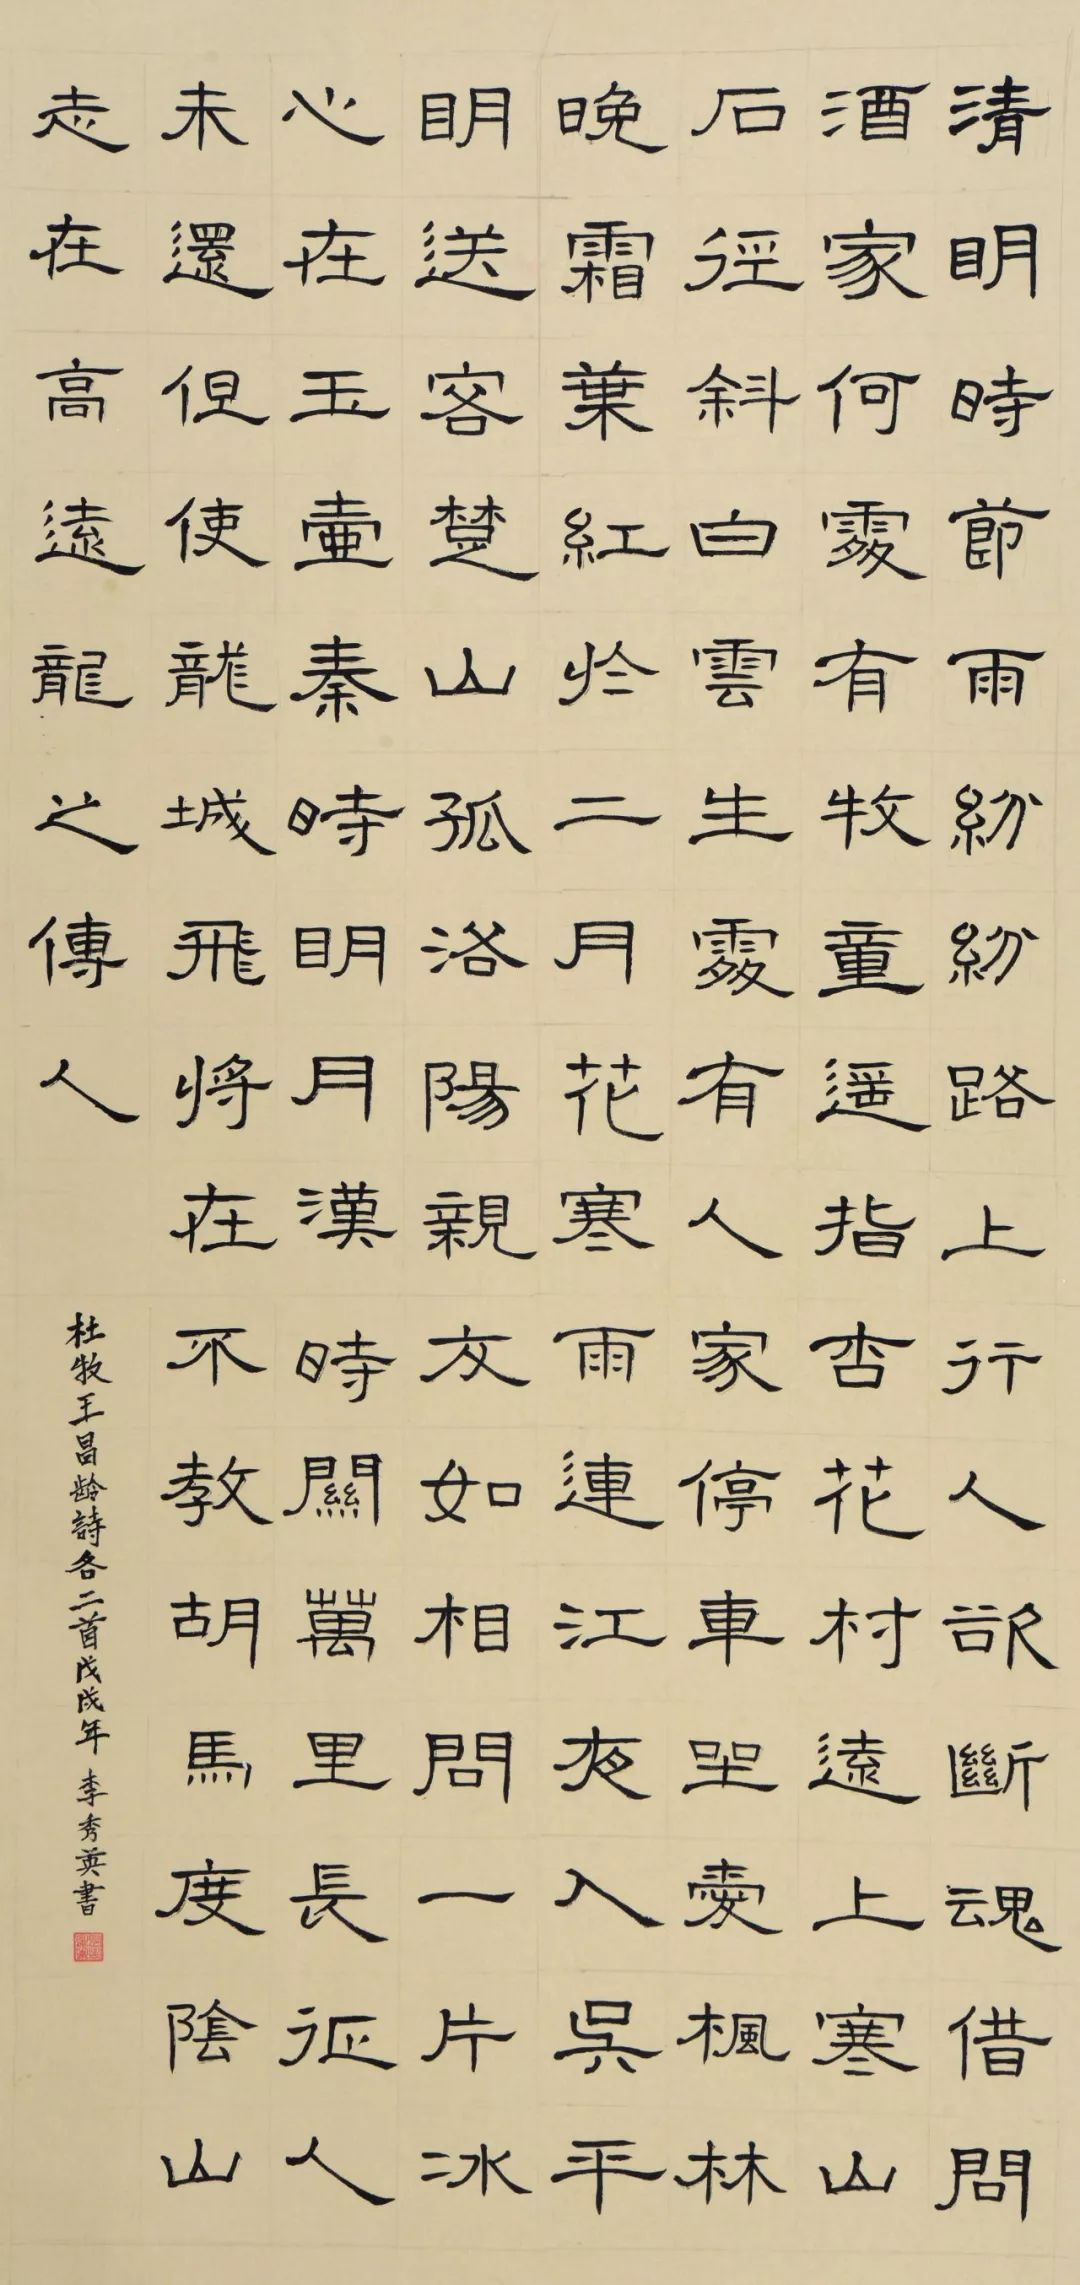 清明時節雨紛紛路上行人欲斷魂借問
酒家何處有牧童遥指杏花村遠上寒山
石徑斜白雲生處有人家停車坐愛楓林
晚霜葉紅於二月花寒雨連江夜入吳平
明送客楚山孤洛陽親友如相問一片冰
心在玉壺秦時明月漢時關萬里長征人
未還但使龍城飛將在不教胡馬度陰山
志在高遠龍之傳人
杜牧王昌齡詩各二首戊戌年 李秀英書